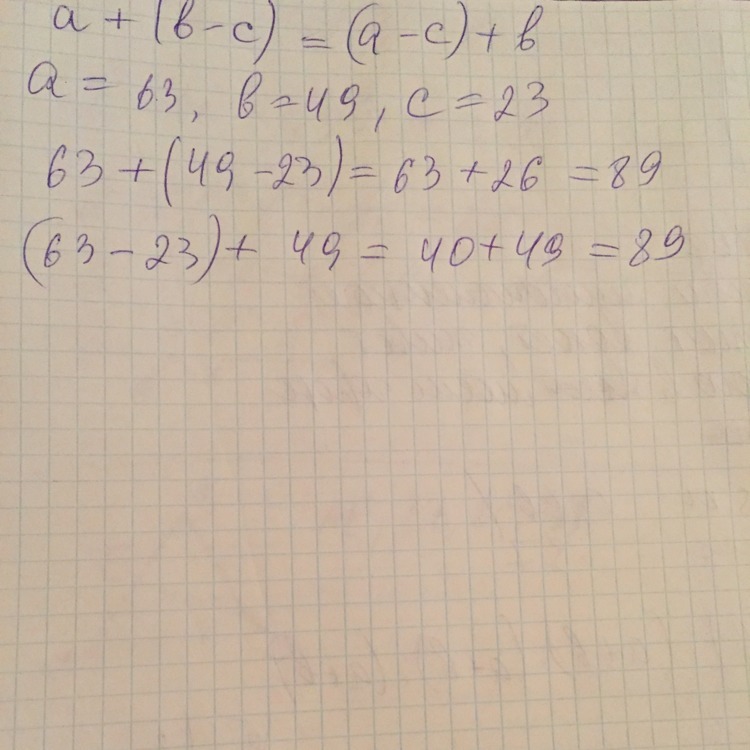 a + (в - c) = (a - c) + в
a = 63, в = 49, c = 23
63 + (49 - 23) = 63 + 26 = 89
(63 - 23) + 49 = 40 + 49 = 89